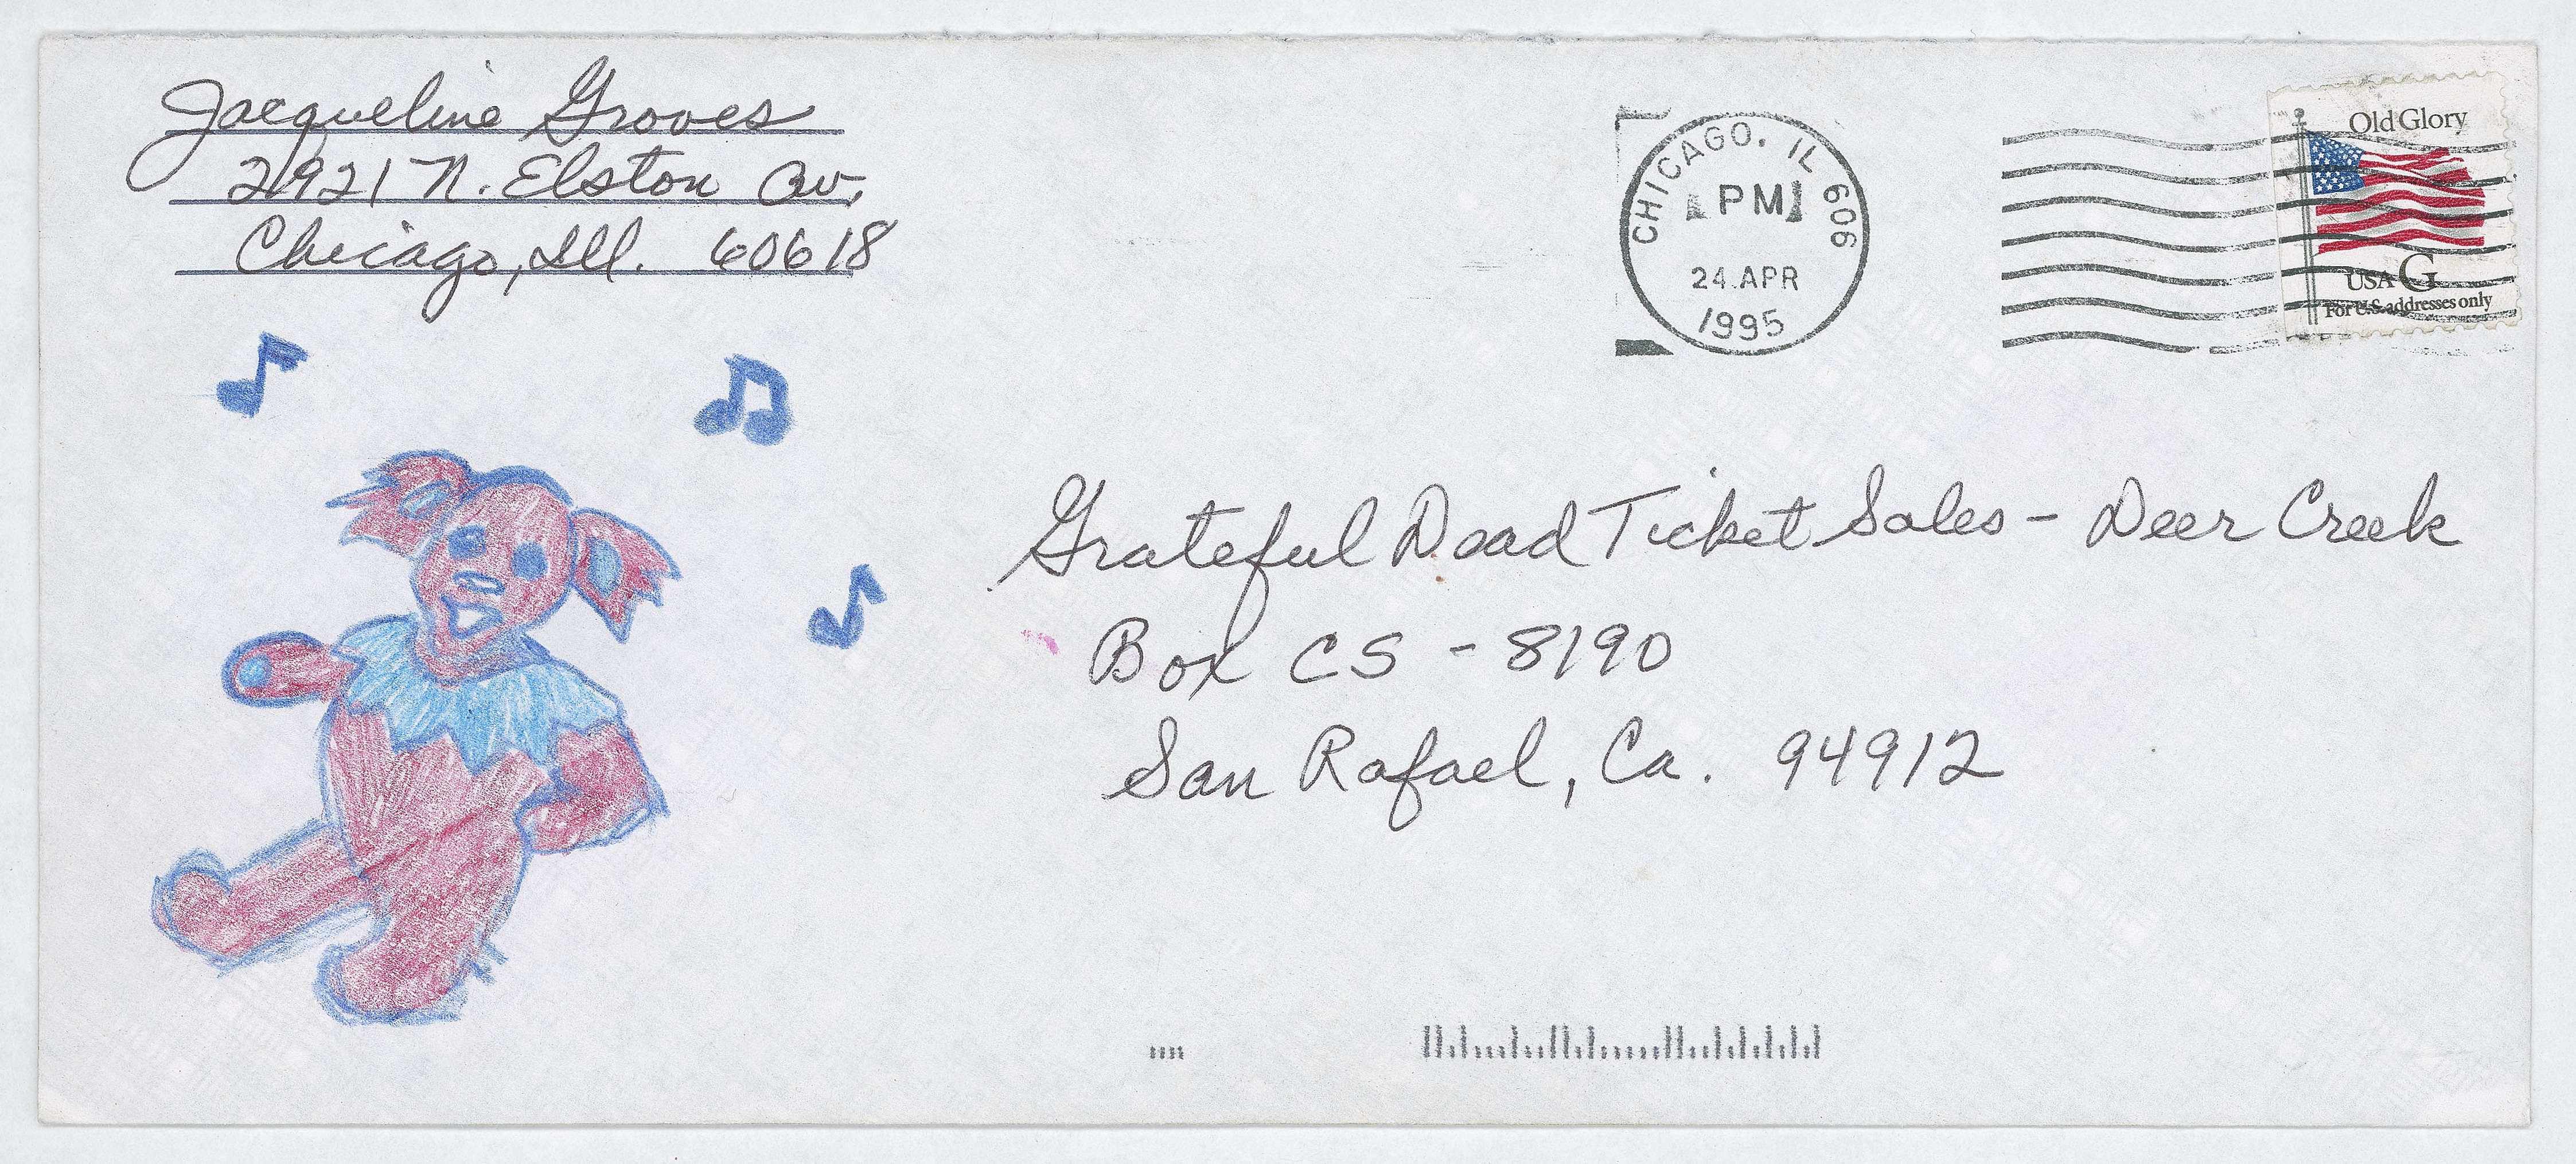 Jacqueline Groves
2921 N. Elston Av.
Chicago, Ill. 60618
CHICAGO, IL 606
PM
24 APR
1995
Old Glory
USA G
For U.S. addresses only
Grateful Dead Ticket Sales - Deer Creek
Box CS - 8190
San Rafael, Ca. 94912